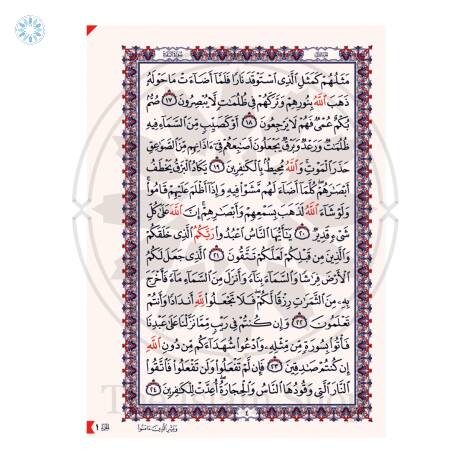 سورة البقرة
مَثَلُهُمْ كَمَثَلِ ٱلَّذِى ٱسْتَوْقَدَ نَارًا فَلَمَّآ أَضَآءَتْ مَا حَوْلَهُۥ
ذَهَبَ ٱللَّهُ بِنُورِهِمْ وَتَرَكَهُمْ فِى ظُلُمَٰتٍ لَّا يُبْصِرُونَ ١٧ صُمٌّۢ
بُكْمٌ عُمْىٌ فَهُمْ لَا يَرْجِعُونَ ١٨ أَوْ كَصَيِّبٍ مِّنَ ٱلسَّمَآءِ فِيهِ
ظُلُمَٰتٌ وَرَعْدٌ وَبَرْقٌ يَجْعَلُونَ أَصَٰبِعَهُمْ فِىٓ ءَاذَانِهِم مِّنَ ٱلصَّوَٰعِقِ
حَذَرَ ٱلْمَوْتِ وَٱللَّهُ مُحِيطٌۢ بِٱلْكَٰفِرِينَ ١٩ يَكَادُ ٱلْبَرْقُ يَخْطَفُ
أَبْصَٰرَهُمْ كُلَّمَآ أَضَآءَ لَهُم مَّشَوْا۟ فِيهِ وَإِذَآ أَظْلَمَ عَلَيْهِمْ قَامُوا۟
وَلَوْ شَآءَ ٱللَّهُ لَذَهَبَ بِسَمْعِهِمْ وَأَبْصَٰرِهِمْ إِنَّ ٱللَّهَ عَلَىٰ كُلِّ
شَىْءٍ قَدِيرٌ ٢٠ يَٰٓأَيُّهَا ٱلنَّاسُ ٱعْبُدُوا۟ رَبَّكُمُ ٱلَّذِى خَلَقَكُمْ
وَٱلَّذِينَ مِن قَبْلِكُمْ لَعَلَّكُمْ تَتَّقُونَ ٢١ ٱلَّذِى جَعَلَ لَكُمُ
ٱلْأَرْضَ فِرَٰشًا وَٱلسَّمَآءَ بِنَآءً وَأَنزَلَ مِنَ ٱلسَّمَآءِ مَآءً فَأَخْرَجَ
بِهِۦ مِنَ ٱلثَّمَرَٰتِ رِزْقًا لَّكُمْ فَلَا تَجْعَلُوا۟ لِلَّهِ أَندَادًا وَأَنتُمْ
تَعْلَمُونَ ٢٢ وَإِن كُنتُمْ فِى رَيْبٍ مِّمَّا نَزَّلْنَا عَلَىٰ عَبْدِنَا
فَأْتُوا۟ بِسُورَةٍ مِّن مِّثْلِهِۦ وَٱدْعُوا۟ شُهَدَآءَكُم مِّن دُونِ ٱللَّهِ
إِن كُنتُمْ صَٰدِقِينَ ٢٣ فَإِن لَّمْ تَفْعَلُوا۟ وَلَن تَفْعَلُوا۟ فَٱتَّقُوا۟
ٱلنَّارَ ٱلَّتِى وَقُودُهَا ٱلنَّاسُ وَٱلْحِجَارَةُ أُعِدَّتْ لِلْكَٰفِرِينَ ٢٤
٤
وَبَشِّرِ ٱلَّذِينَ ءَامَنُوا۟
الجزء ١
The Islamic Shop